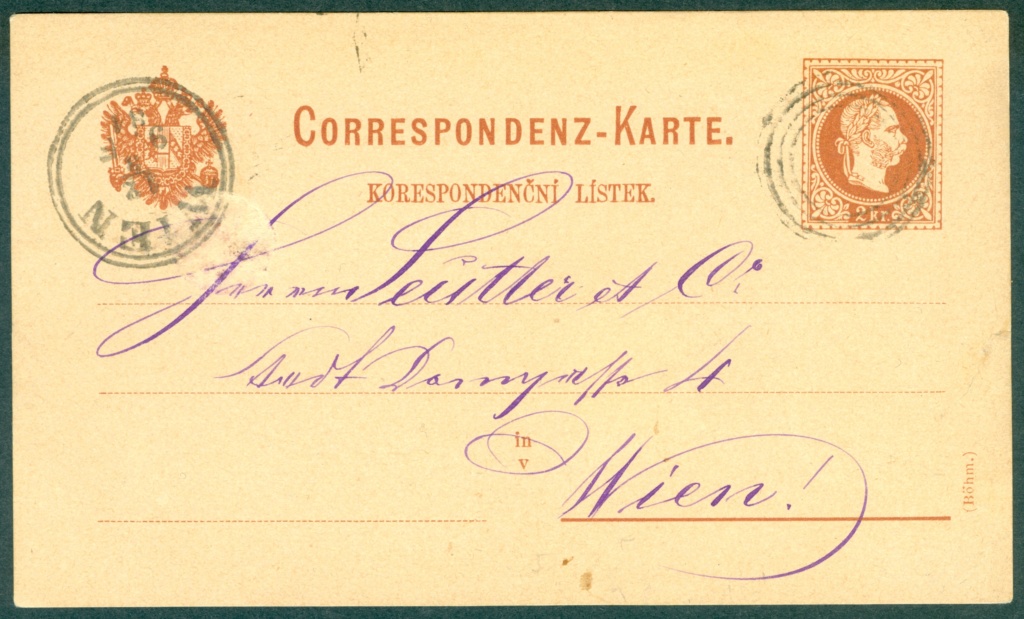 CORRESPONDENZ-KARTE.
KORESPONDENČNÍ LÍSTEK.
2 kr.
WIEN
Herrn Leutler et Co
Stadt Domgasse 4
in
v
Wien!
(Böhm.)